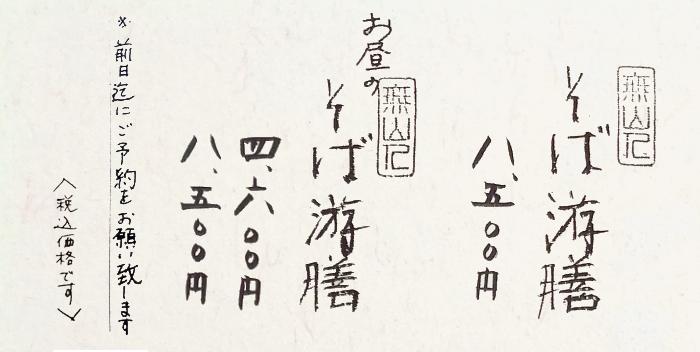 無山人
そば游膳
八、五〇〇円
お昼の
無山人
そば游膳
四、六〇〇円
八、五〇〇円
※前日迄にご予約をお願い致します
〈税込価格です〉